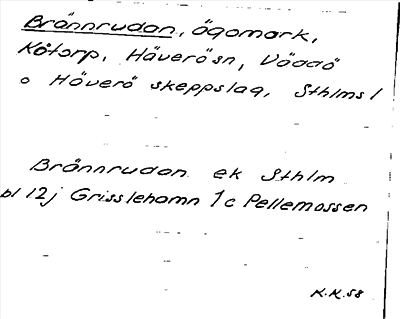 Brännrudan, ägomark,
Kåtorp, Häverösn, Väddö
o Häverö skeppslag, Sthlms l
Brännrudan ek Sthlm
bl 12j Grisslehamn 1c Pellemossen
K.K.58